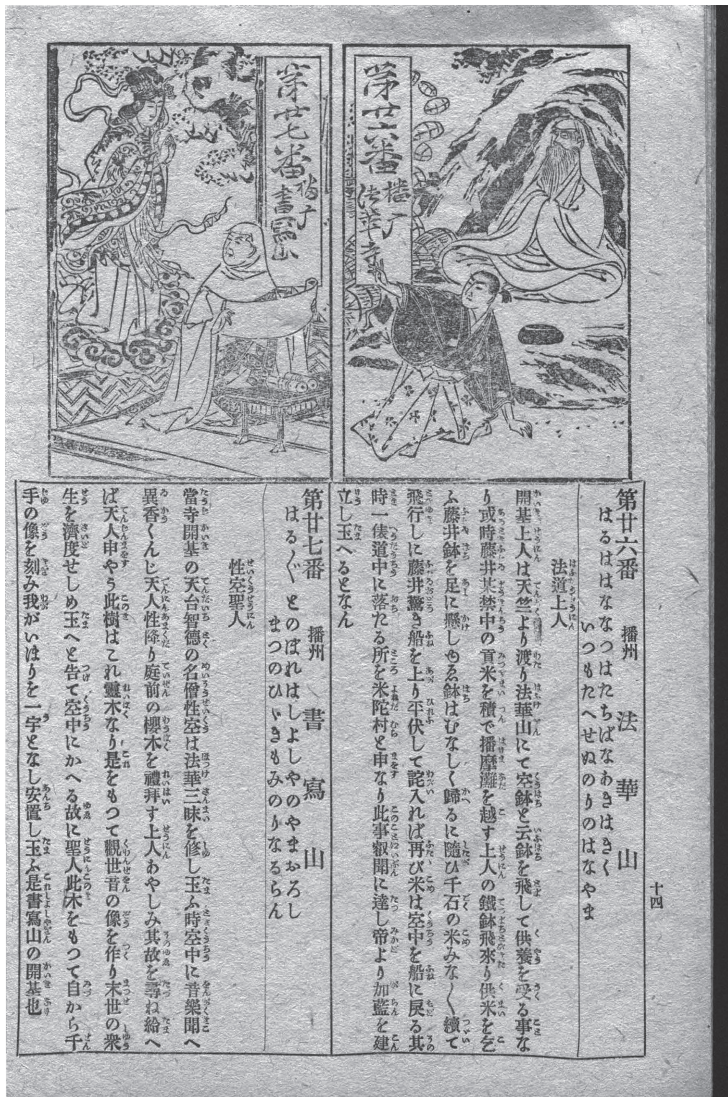 第廿六番 播州 法華山
はるははななつはたちばなあきはきく
いつもたへせぬのりのはなやま
法道上人
開基上人は天竺より渡り法華山にて空鉢と云鉢を飛して供養を受る事な
り或時藤井某禁中の貢米を積で播磨灘を越す上人の鐵鉢飛來り供米を乞
ふ藤井鉢を足に懸しゆゑ鉢はむなしく歸るに隨ひ千石の米みな〱續て
飛行しに藤井驚き船を上り平伏して詫入れば再び米は空中を船に戻る其
時一俵道中に落たる所を米陀村と申なり此事叡聞に達し帝より加藍を建
立し玉へるとなん
第廿七番 播州 書寫山
はる〲とのぼれはしよしやのやまおろし
まつのひゞきもみのりなるらん
性空聖人
當寺開基の天台智德の名僧性空は法華三昧を修し玉ふ時空中に音樂聞へ
異香くんじ天人性降り庭前の櫻木を禮拜す上人あやしみ其故を尋ね給へ
ば天人申やう此樹はこれ靈木なり是をもつて觀世音の像を作り末世の衆
生を濟度せしめ玉へと告て空中にかへる故に聖人此木をもつて自から千
手の像を刻み我がいほりを一宇となし安置し玉ふ是書寫山の開基也
十四
第廿六番
播州
法華寺
第廿七番
播州
書寫山